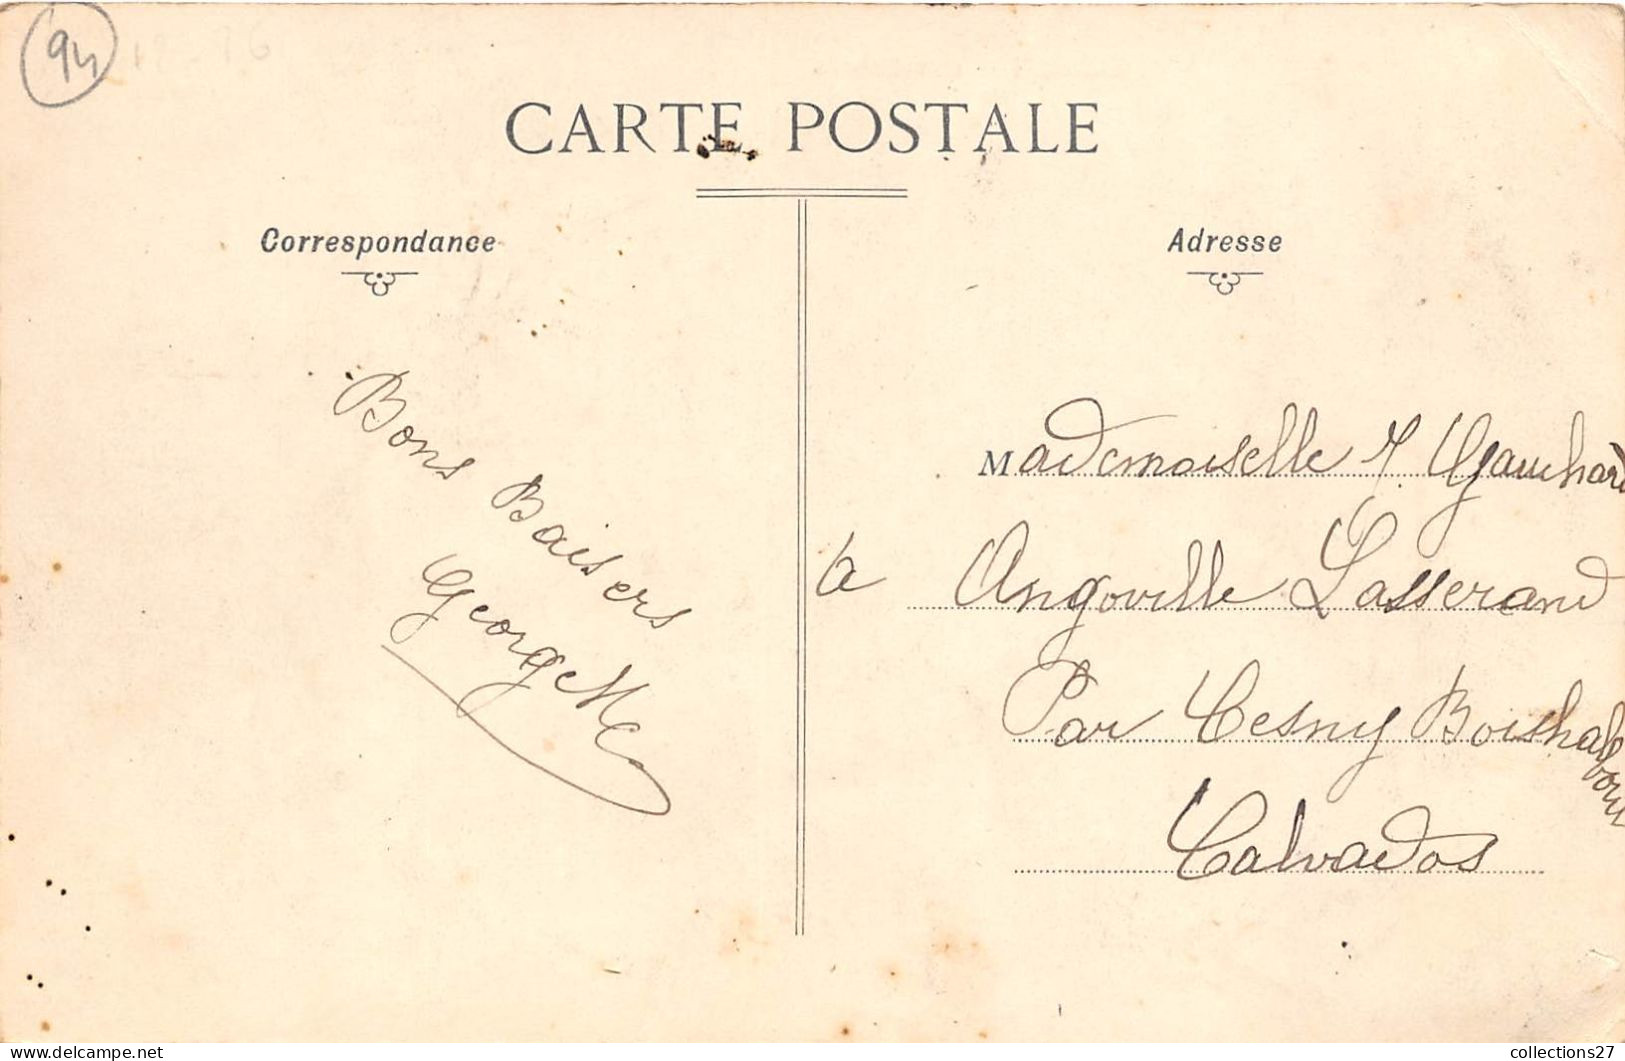 94
CARTE POSTALE
Correspondance
Adresse
Bons Baisers
Georgette
Mademoiselle Y. Gauchard
à Angoville Lasserand
Par Cesny Boishalbout
Calvados
www.delcampe.net
collections27